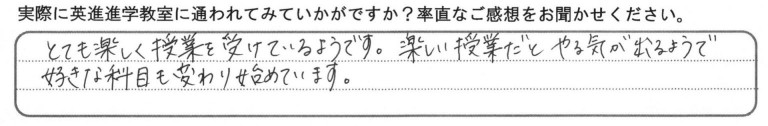 実際に英進進学教室に通われてみていかがですか？率直なご感想をお聞かせください。
とても楽しく授業を受けているようです。楽しい授業だと やる気が出るようで
好きな科目も変わり始めています。